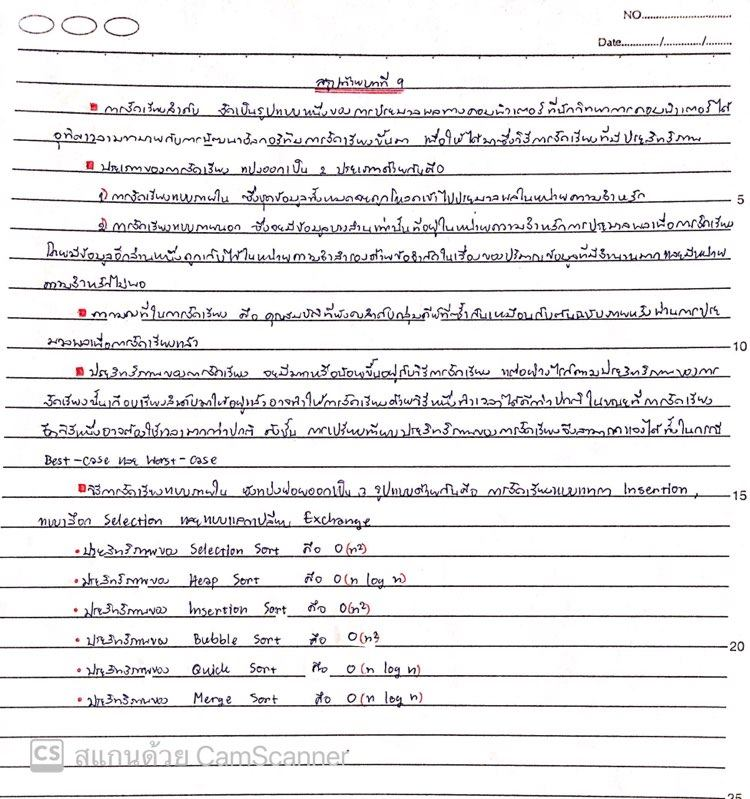 NO.
Date........../........../.......
สรุปท้ายบทที่ 9
การจัดเรียงลำดับ จัดเป็นรูปแบบหนึ่งของการประมวลผลทางคอมพิวเตอร์ที่นักวิทยาการคอมพิวเตอร์ได้
อุทิศเวลามากมายกับการพัฒนาอัลกอริทึมการจัดเรียงขึ้นมา เพื่อให้ได้มาซึ่งวิธีการจัดเรียงที่มีประสิทธิภาพ
ประเภทของการจัดเรียง แบ่งออกเป็น 2 ประเภทด้วยกันคือ
1) การจัดเรียงแบบภายใน ซึ่งชุดข้อมูลทั้งหมดจะถูกโหลดเข้าไปประมวลผลในหน่วยความจำหลัก
5
2) การจัดเรียงแบบภายนอก ซึ่งจะมีข้อมูลบางส่วนเท่านั้นที่อยู่ในหน่วยความจำหลักการประมวลผลเพื่อการจัดเรียง
โดยมีข้อมูลอีกส่วนหนึ่งถูกเก็บไว้ในหน่วยความจำสำรองด้วยข้อจำกัดในเรื่องของปริมาณข้อมูลที่มีจำนวนมากและมีหน่วย
ความจำหลักไม่พอ
ความคงที่ในการจัดเรียง คือ คุณสมบัติที่ยังคงลำดับกลุ่มคีย์ที่ซ้ำกันเหมือนกับต้นฉบับภายหลังผ่านการประ
มวลผลเพื่อการจัดเรียงแล้ว
10
ประสิทธิภาพของการจัดเรียง จะมีมากหรือน้อยขึ้นอยู่กับวิธีการจัดเรียง แต่อย่างไรก็ตามประสิทธิภาพของการ
จัดเรียงนั้นเกือบเรียงลำดับมาให้อยู่แล้วอาจทำให้การจัดเรียงด้วยวิธีหนึ่งทำเวลาได้ดีกว่าปกติ ในขณะที่การจัดเรียง
อีกวิธีหนึ่งอาจต้องใช้เวลามากกว่าปกติ ดังนั้น การเปรียบเทียบประสิทธิภาพของการจัดเรียงจึงสามารถมองได้ทั้งในกรณี
Best-case และ Worst-case
วิธีการจัดเรียงแบบภายใน ยังแบ่งย่อยออกเป็น 3 รูปแบบด้วยกันคือ การจัดเรียงแบบแทรก Insertion,
15
แบบเลือก Selection และแบบแลกเปลี่ยน Exchange
• ประสิทธิภาพของ Selection Sort คือ O(n²)
• ประสิทธิภาพของ Heap Sort คือ O(n log n)
• ประสิทธิภาพของ Insertion Sort คือ O(n²)
• ประสิทธิภาพของ Bubble Sort คือ O(n²
20
• ประสิทธิภาพของ Quick Sort คือ O(n log n)
• ประสิทธิภาพของ Merge Sort คือ O(n log n)
CS สแกนด้วย CamScanner
25